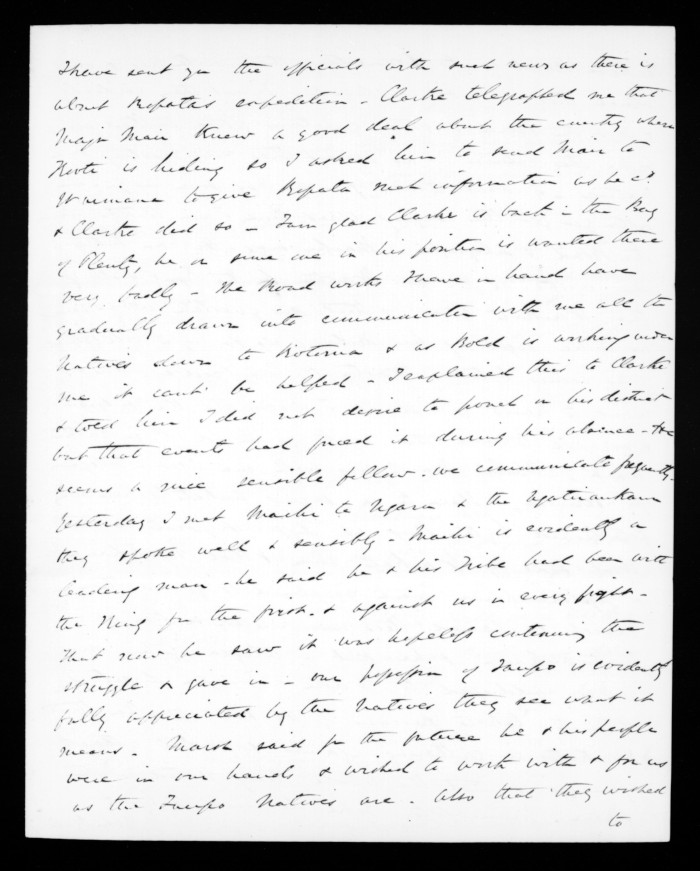 I have sent you the officials with such news as there is
about Ropata's expedition - Clarke telegraphed me that
Major Mair knew a good deal about the country where
Kooti is hiding so I asked him to send Mair to
Waimana to give Ropata such information as he cd
& Clarke did so - I am glad Clarke is back in the Bay
of Plenty, he or some one in his position is wanted there
very badly - The Road works I have in hand have
gradually drawn into communication with me all the
Natives down to Rotorua & as Bold is working under
me it cant be helped - I explained this to Clarke
& told him I did not desire to poach on his district
but that events had forced it during his absence - He
seems a nice sensible fellow - we communicate frequently -
Yesterday I met Maihi te Ngaru & the
they spoke well & sensibly - Maihi is evidently a
leading man - he said he & his Tribe had been with
the King from the first - & against us in every fight -
that now he saw it was hopeless continuing the
struggle & gave in - our possession of Taupo is evidently
fully appreciated by the Natives they see what it
means - said for the future he & his people
were in our hands & wished to work with & for us
as the Taupo Natives are - also that they wished
to